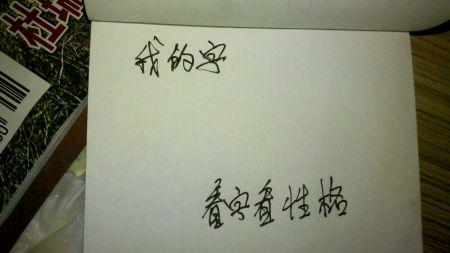 我的字
看字看性格
杜城